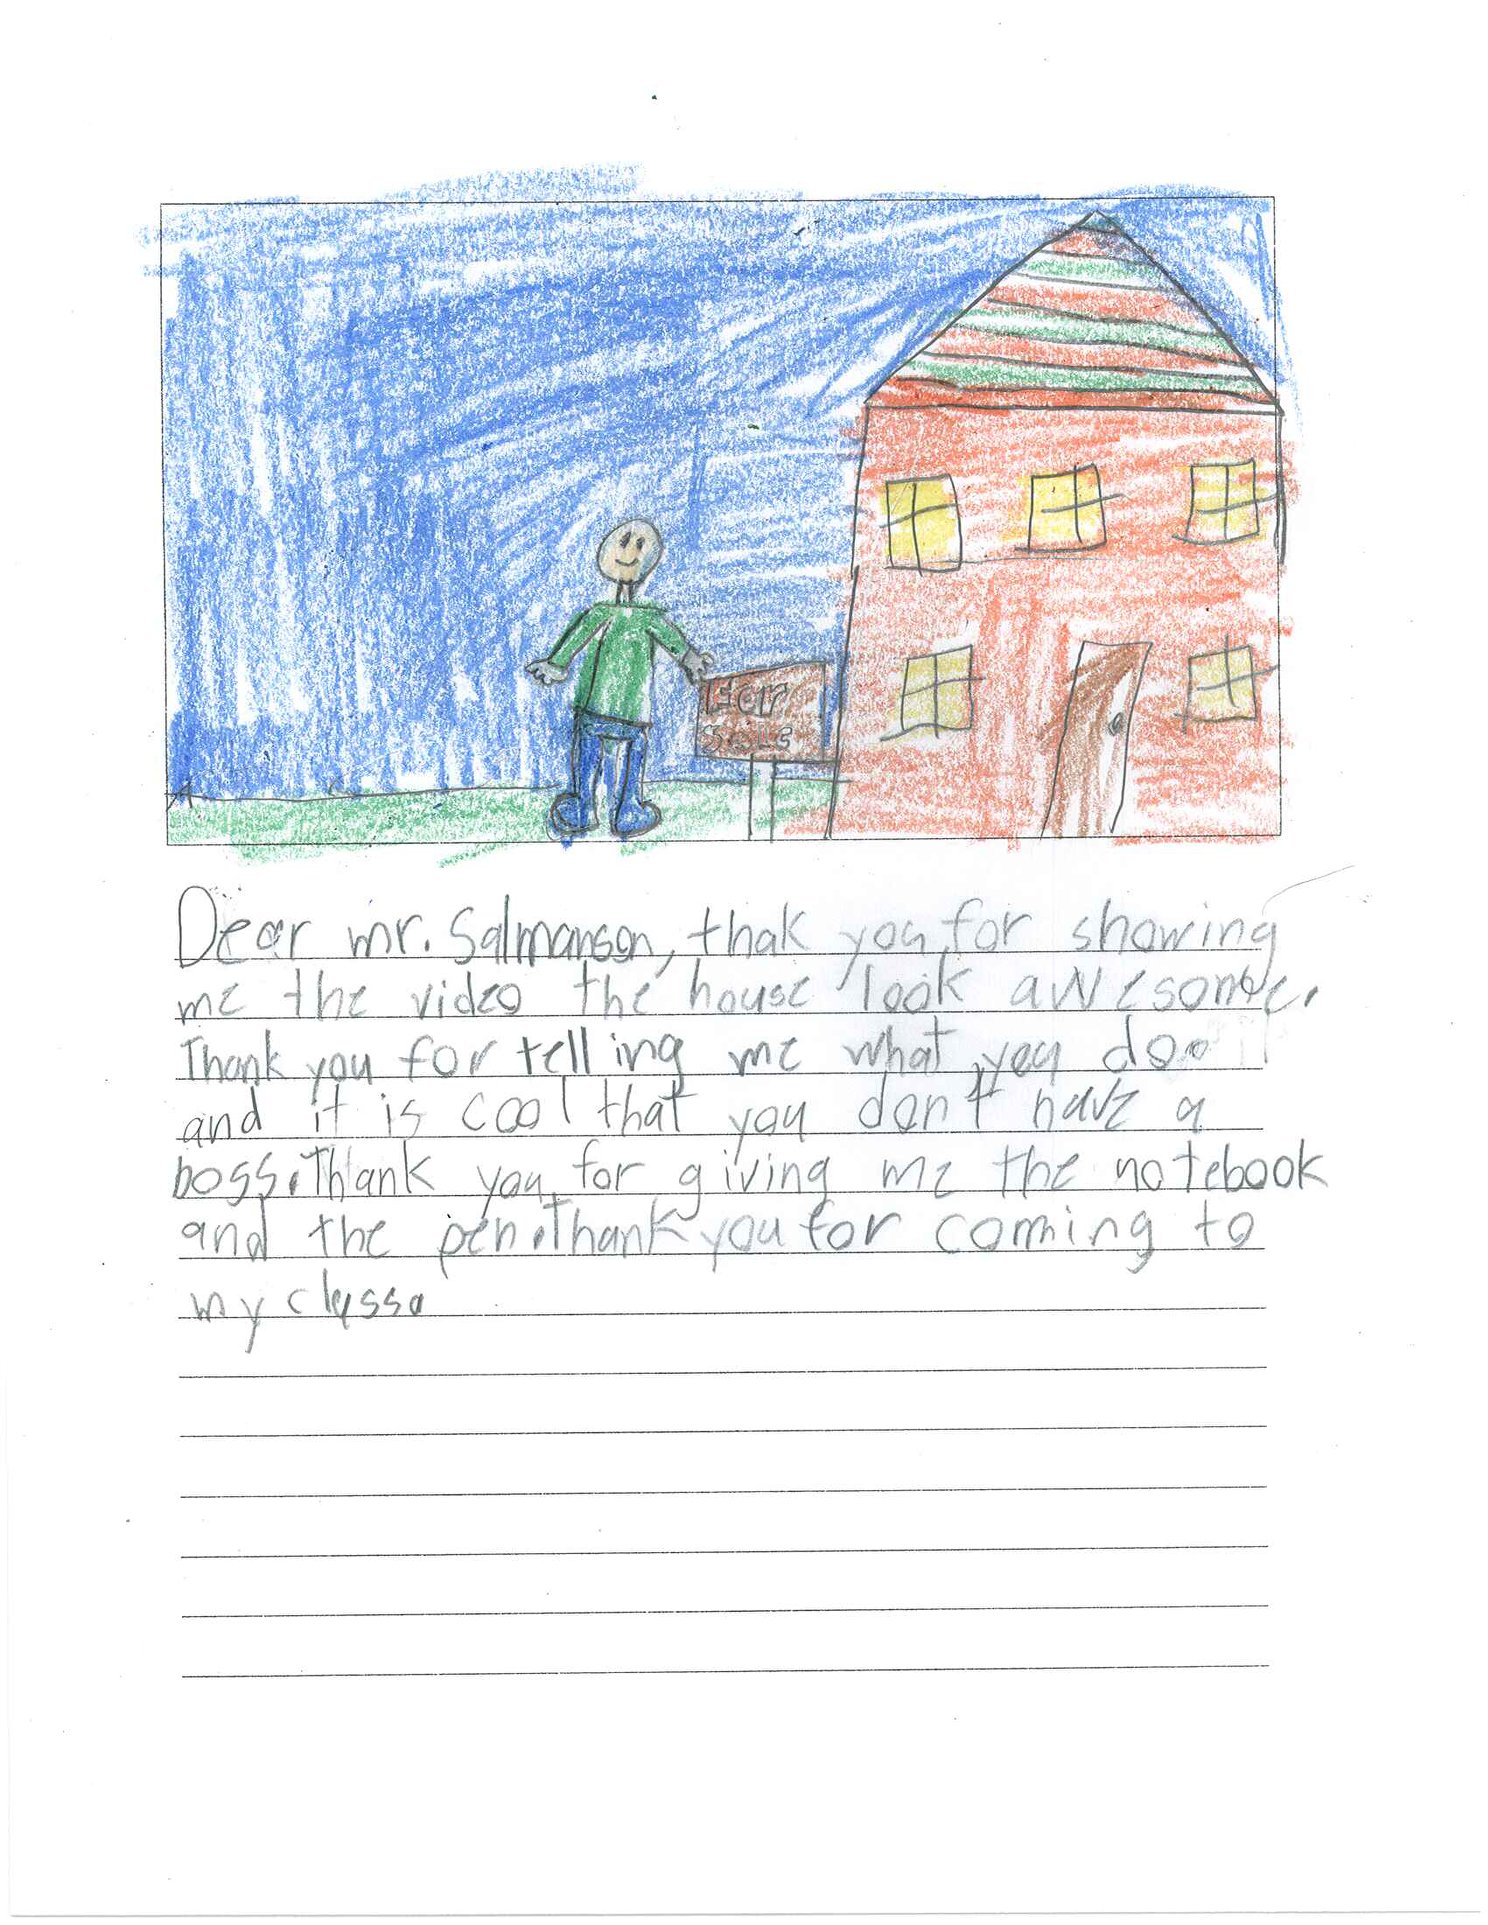 For
Sale
Dear mr. Salmanson, thak you for showing
me the video the house look awesome.
Thank you for telling me what you do.
and it is cool that you don't have a
boss. Thank you for giving me the notebook
and the pen. Thank you for coming to
my class.